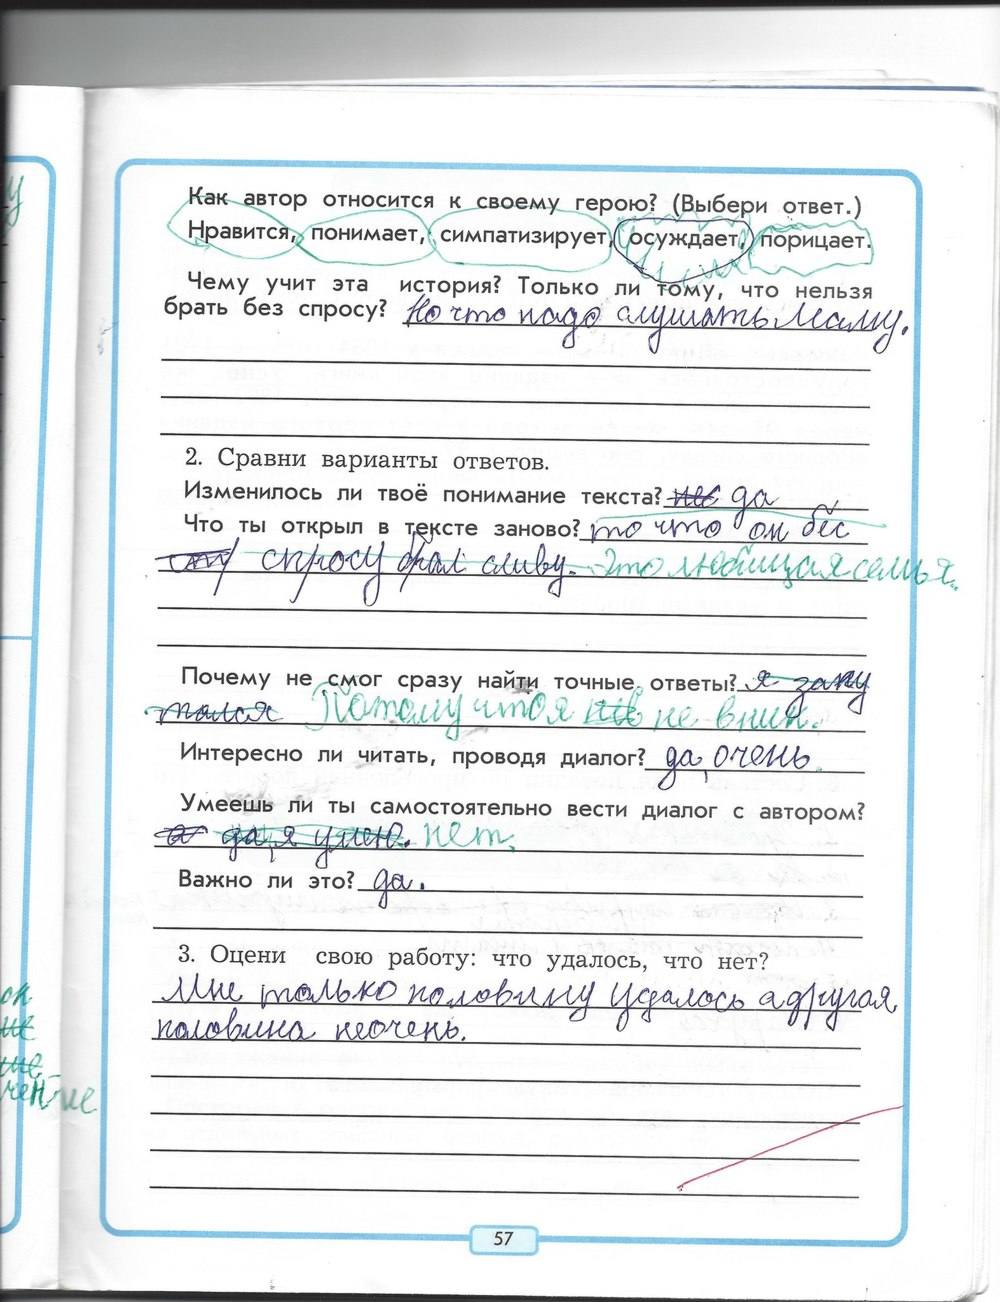 Как автор относится к своему герою? (Выбери ответ.)
Нравится, понимает, симпатизирует, осуждает, порицает.
Чему учит эта история? Только ли тому, что нельзя
брать без спросу? Но что надо слушать Маму.
2. Сравни варианты ответов.
Изменилось ли твоё понимание текста? не да
Что ты открыл в тексте заново? то что он бес
спросу брал сливу. Это любящая семья.
Почему не смог сразу найти точные ответы? я запу
тался Потому что я не вним.
Интересно ли читать, проводя диалог? да, очень.
Умеешь ли ты самостоятельно вести диалог с автором?
да, я умею. нет.
Важно ли это? да.
3. Оцени свою работу: что удалось, что нет?
Мне только половину удалось а другая
половина неочень.
57